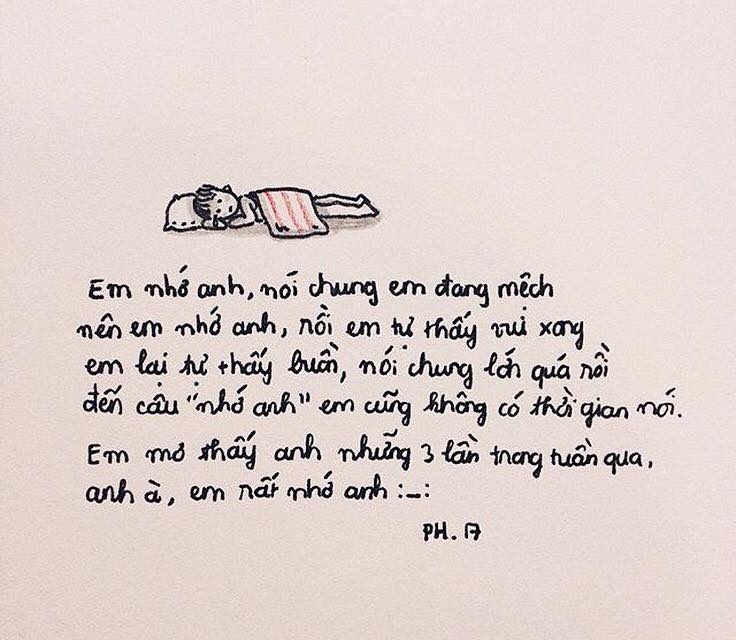 Em nhớ anh, nói chung em đang mệch
nên em nhớ anh, rồi em tự thấy vui xong
em lại tự thấy buồn, nói chung lớn quá rồi
đến câu "nhớ anh" em cũng không có thời gian nói.
Em mơ thấy anh những 3 lần trong tuần qua,
anh à, em rất nhớ anh :_:
PH. 17